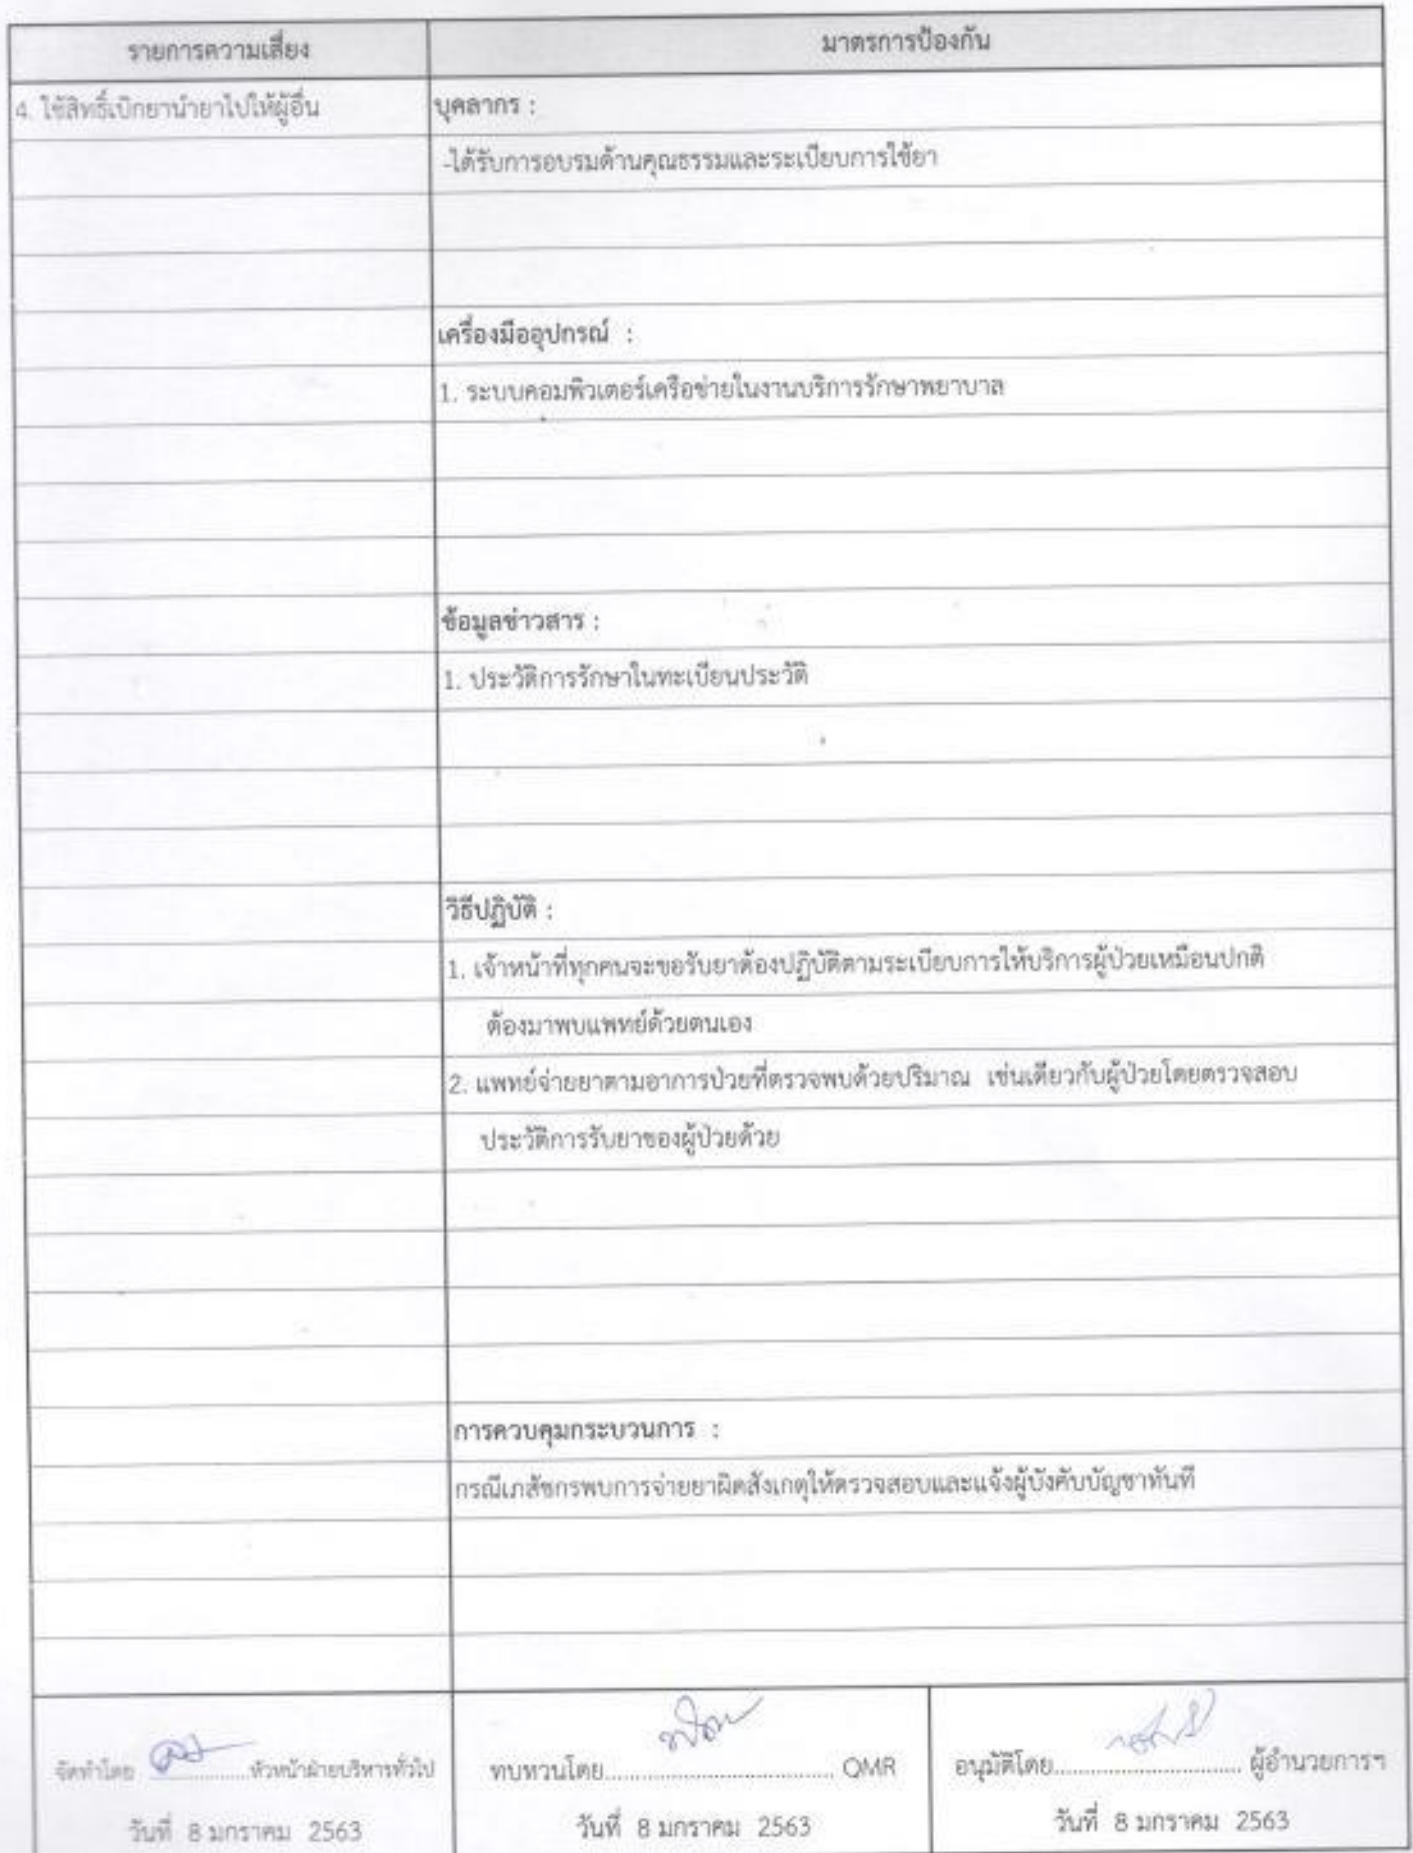 รายการความเสี่ยง
มาตรการป้องกัน
4. ใช้สิทธิ์เบิกยานำยาไปให้ผู้อื่น
บุคลากร :
-ได้รับการอบรมด้านคุณธรรมและระเบียบการใช้ยา
เครื่องมืออุปกรณ์ :
1. ระบบคอมพิวเตอร์เครือข่ายในงานบริการรักษาพยาบาล
ข้อมูลข่าวสาร :
1. ประวัติการรักษาในทะเบียนประวัติ
วิธีปฏิบัติ :
1. เจ้าหน้าที่ทุกคนจะขอรับยาต้องปฏิบัติตามระเบียบการให้บริการผู้ป่วยเหมือนปกติ
ต้องมาพบแพทย์ด้วยตนเอง
2. แพทย์จ่ายยาตามอาการป่วยที่ตรวจพบด้วยปริมาณ เช่นเดียวกับผู้ป่วยโดยตรวจสอบ
ประวัติการรับยาของผู้ป่วยด้วย
การควบคุมกระบวนการ :
กรณีเภสัชกรพบการจ่ายยาผิดสังเกตุให้ตรวจสอบและแจ้งผู้บังคับบัญชาทันที
จัดทำโดย ...............หัวหน้าฝ่ายบริหารทั่วไป
วันที่ 8 มกราคม 2563
ทบทวนโดย..................................... QMR
วันที่ 8 มกราคม 2563
อนุมัติโดย............................... ผู้อำนวยการฯ
วันที่ 8 มกราคม 2563